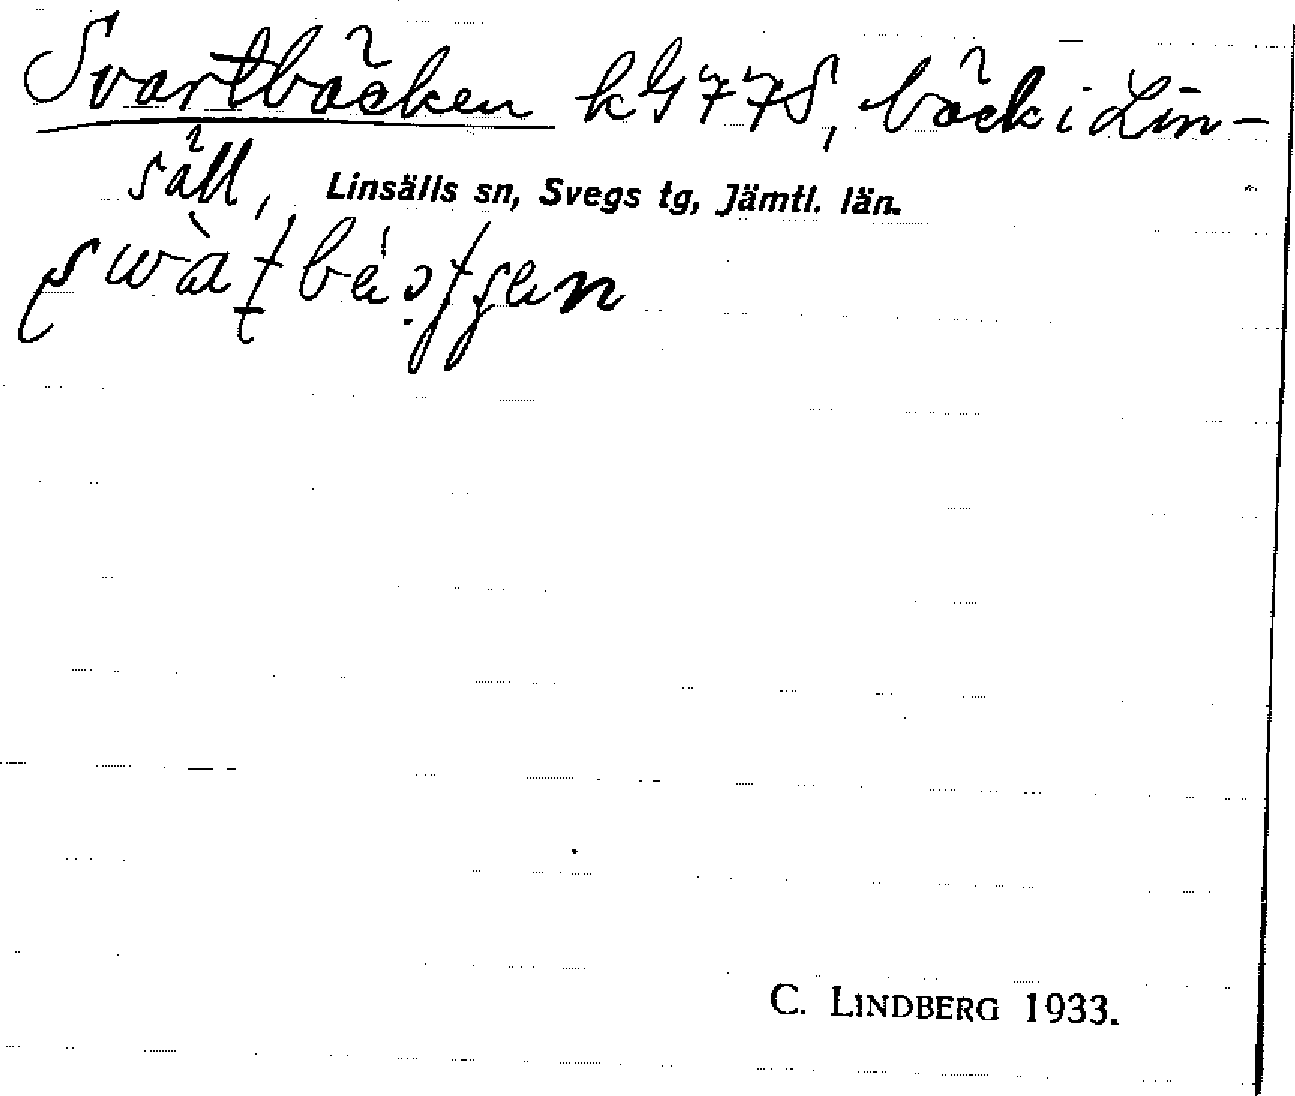 Svartbäcken k9778, bäck i Lin-
säll, Linsälls sn, Svegs tg, Jämtl. län.
C. LINDBERG 1933.